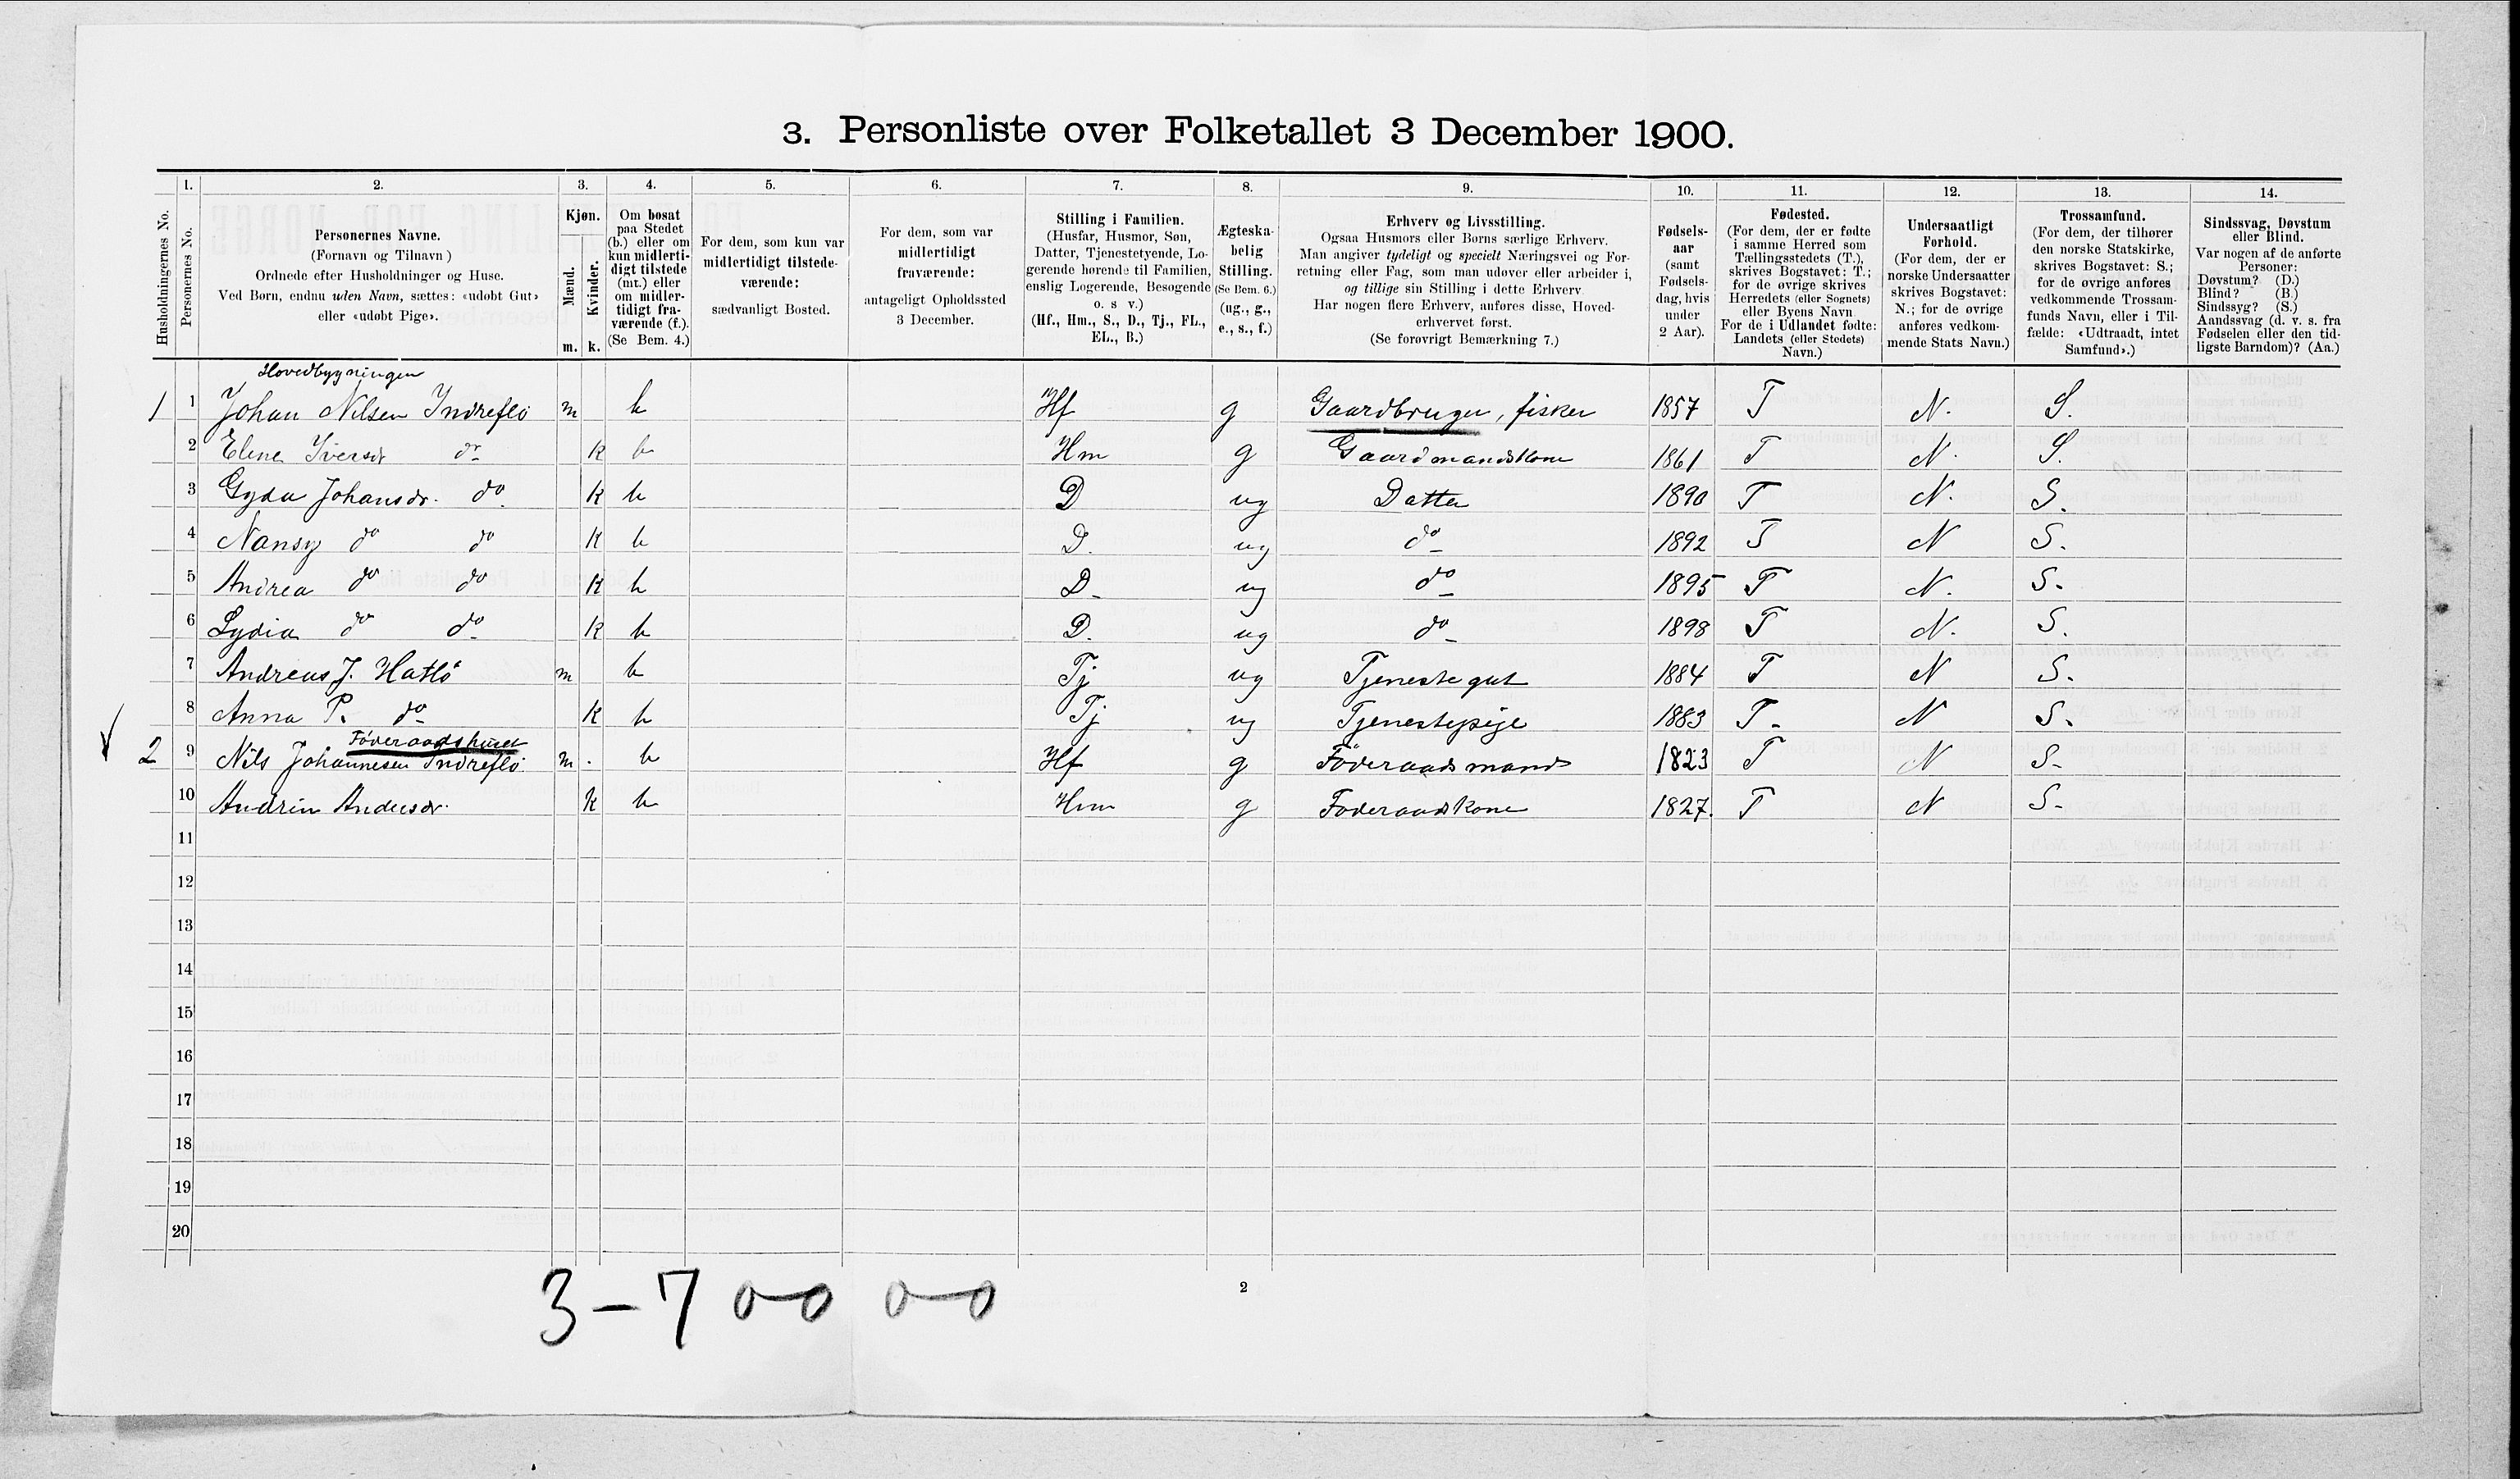 3. Personliste over Folketallet 3 December 1900.
1. 2. 3. 4. 5. 6. 7. 8. 9. 10. 11. 12. 13. 14.
Husholdningernes No.
Personernes No.
Personernes Navne.
(Fornavn og Tilnavn)
Ordnede efter Husholdninger og Huse.
Ved Børn, endnu uden Navn, sættes: «udøbt Gut»
eller «udøbt Pige».
Kjøn.
Mænd.
Kvinder.
m. k.
Om bosat
paa Stedet
(b.) eller om
kun midlerti-
digt tilstede
(mt.) eller
om midler-
tidigt fra-
værende (f.).
(Se Bem. 4.)
For dem, som kun var
midlertidigt tilstede-
værende:
sædvanligt Bosted.
For dem, som var
midlertidigt
fraværende:
antageligt Opholdssted
3 December.
Stilling i Familien.
(Husfar, Husmor, Søn,
Datter, Tjenestetyende, Lo-
gerende hørende til Familien,
enslig Logerende, Besøgende
o. s v.)
(Hf., Hm., S., D., Tj., FL.,
EL., B.)
Ægteska-
belig
Stilling.
(Se Bem. 6.)
(ug., g.,
e., s., f.)
Erhverv og Livsstilling.
Ogsaa Husmors eller Børns særlige Erhverv.
Man angiver tydeligt og specielt Næringsvei og For-
retning eller Fag, som man udøver eller arbeider i,
og tillige sin Stilling i dette Erhverv.
Har nogen flere Erhverv, anføres disse, Hoved-
erhvervet først.
(Se forøvrigt Bemærkning 7.)
Fødsels-
aar
(samt
Fødsels-
dag, hvis
under
2 Aar).
Fødested.
(For dem, der er fødte
i samme Herred som
Tællingsstedets (T.),
skrives Bogstavet: T.;
for de øvrige skrives
Herredets (eller Sognets)
eller Byens Navn.
For de i Udlandet fødte:
Landets (eller Stedets)
Navn.)
Undersaatligt
Forhold.
(For dem, der er
norske Undersaatter
skrives Bogstavet:
N.; for de øvrige
anføres vedkom-
mende Stats Navn.)
Trossamfund.
(For dem, der tilhører
den norske Statskirke,
skrives Bogstavet: S.;
for de øvrige anføres
vedkommende Trossam-
funds Navn, eller i Til-
fælde: «Udtraadt, intet
Samfund».)
Sindssvag, Døvstum
eller Blind.
Var nogen af de anførte
Personer:
Døvstum? (D.)
Blind? (B.)
Sindssyg? (S.)
Aandssvag (d. v. s. fra
Fødselen eller den tid-
ligste Barndom)? (Aa.)
Hovedbygningen
1 1 Johan Nilsen Indreflo m b Hf g Gaardbruger, fisker 1857 T N. S.
2 Eline Iversdr do k b Hm g Gaardmandskone 1861 T N. S.
3 Gyda Johansdr. do k b D ug Datter 1890 T N. S.
4 Nansy do do k b D. ug do 1892 T N S.
5 Andrea do do k b D. ug do 1895 T N. S.
6 Lydia do do k b D. ug do 1898 T N. S.
7 Andreas J. Hatlö m b Tj ug Tjenestegut 1884 T N S.
8 Anna P. do k b Tj ug Tjenestepige 1883 T. N S.
Föderaadshuset
2 9 Nils Johannesen Indreflo m. b Hf g Föderaadsmand 1823 T N S.
10 Andrin Andersdr. k b Hm g Föderaadskone 1827. T N S.
11
12
13
14
15
16
17
18
19
20
3-7 0-0 0-0
2